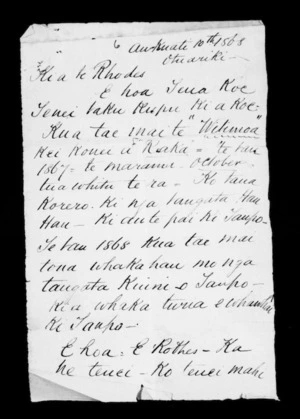 10th 1868
Otuariki -
Kia te Rhodes
E hoa Tena Koe
Tenei taku Kupu Ki a Koe:
Kua tae mai te "Witimoa"
Kei Konei i Kaka" - Te tau
1867 - te marama. October -
tua whitu te ra - Ko tana
Korero. Ki nga tangata Hau
Hau - Ki te pai ki Taupo -
Te tau 1868 Kua tae mai
tona whakahau mo nga
tangata Kuini - o Taupo -
Kia whaka turia e whawhai
Ki Taupo -
E hoa: E Rothes - Ka
he tenei - Ko tenei mahi